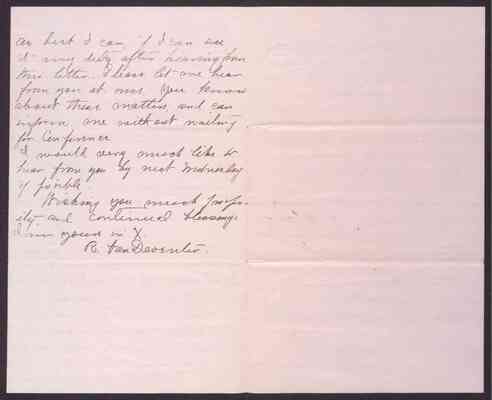 as best I can, if I can see
it my duty after hearing from
this letter. Please let me hear
from you at once. You know
about these matters and can
inform me without waiting
for Conference.
I would very much like to
hear from you by next Wednesday
if possible.
Wishing you much prosper-
ity and continued blessings
I am yours in X.
R. VanDeventer.